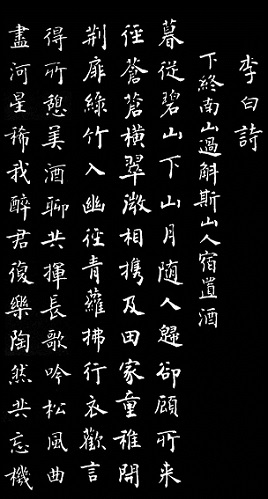 李白詩
下終南山過斛斯山人宿置酒
暮從碧山下山月隨人歸卻顧所來
徑蒼蒼橫翠微相攜及田家童稚開
荆扉綠竹入幽徑青蘿拂行衣歡言
得所憩美酒聊共揮長歌吟松風曲
盡河星稀我醉君復樂陶然共忘機